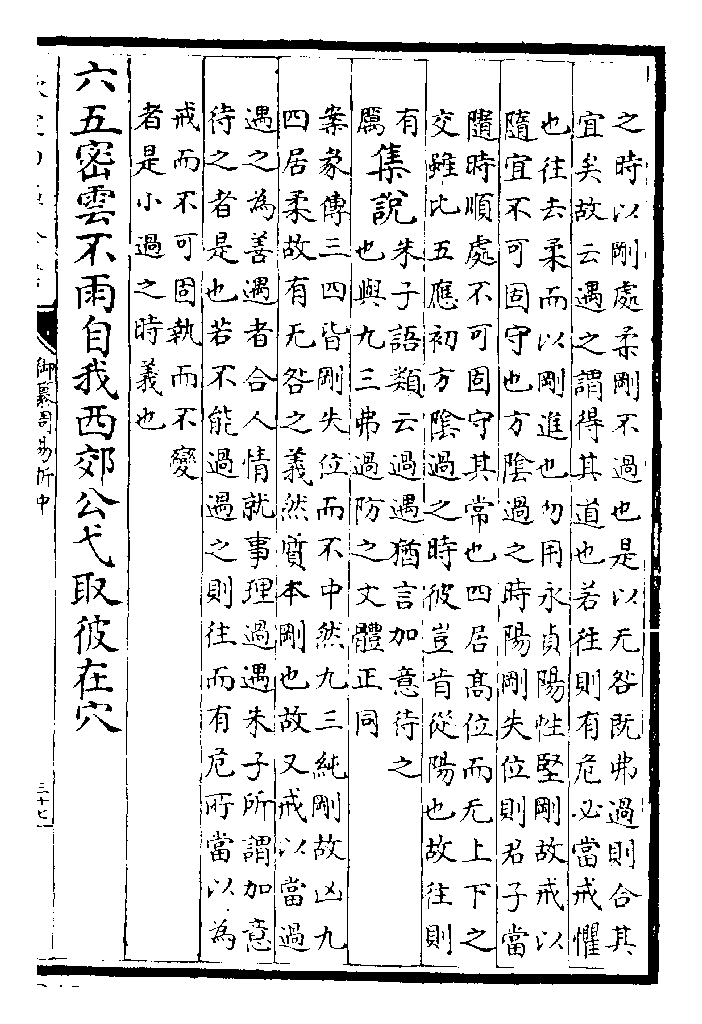 之時以剛處柔剛不過也是以无咎既弗過則合其
宜矣故云遇之謂得其道也若往則有危必當戒懼
也往去柔而以剛進也勿用永貞陽性堅剛故戒以
隨宜不可固守也方陰過之時陽剛失位則君子當
隨時順處不可固守其常也四居髙位而无上下之
交雖比五應初方陰過之時彼豈肯從陽也故往則
有
厲
集說
朱子語類云過遇猶言加意待之
也與九三弗過防之文體正同
案象傳三四皆剛失位而不中然九三純剛故凶九
四居柔故有无咎之義然質本剛也故又戒以當過
遇之為善遇者合人情就事理過遇朱子所謂加意
待之者是也若不能過遇之則往而有危所當以為
戒而不可固執而不變
者是小過之時義也
六五密雲不雨自我西郊公弋取彼在穴
御纂周易折中
三十七